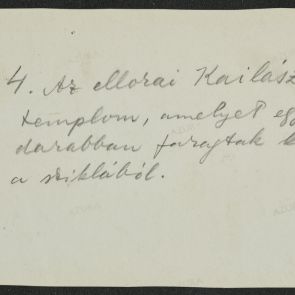 4. Az ellorai Kailász
templom, amelyet eg
darabban faragtak k
a sziklából.